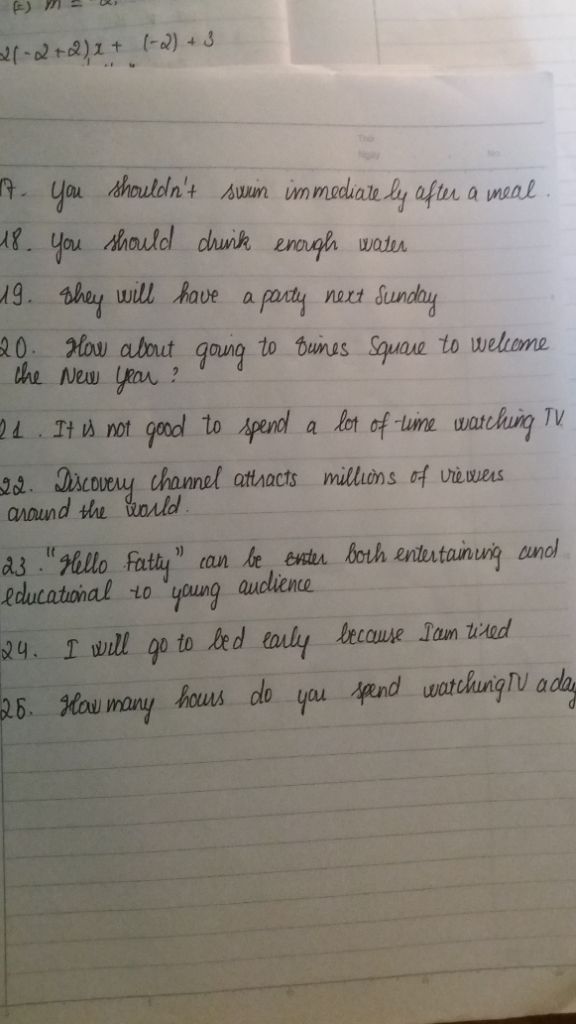 2(-2+2)x + (-2) + 3
Thứ
Ngày
No.
17. You shouldn't swim immediately after a meal.
18. You should drink enough water
19. They will have a party next Sunday
20. How about going to Times Square to welcome
the New Year?
21. It is not good to spend a lot of time watching TV
22. Discovery channel attracts millions of viewers
around the world.
23. "Hello Fatty" can be both entertaining and
educational to young audience
24. I will go to bed early because I am tired
25. How many hours do you spend watching TV a day